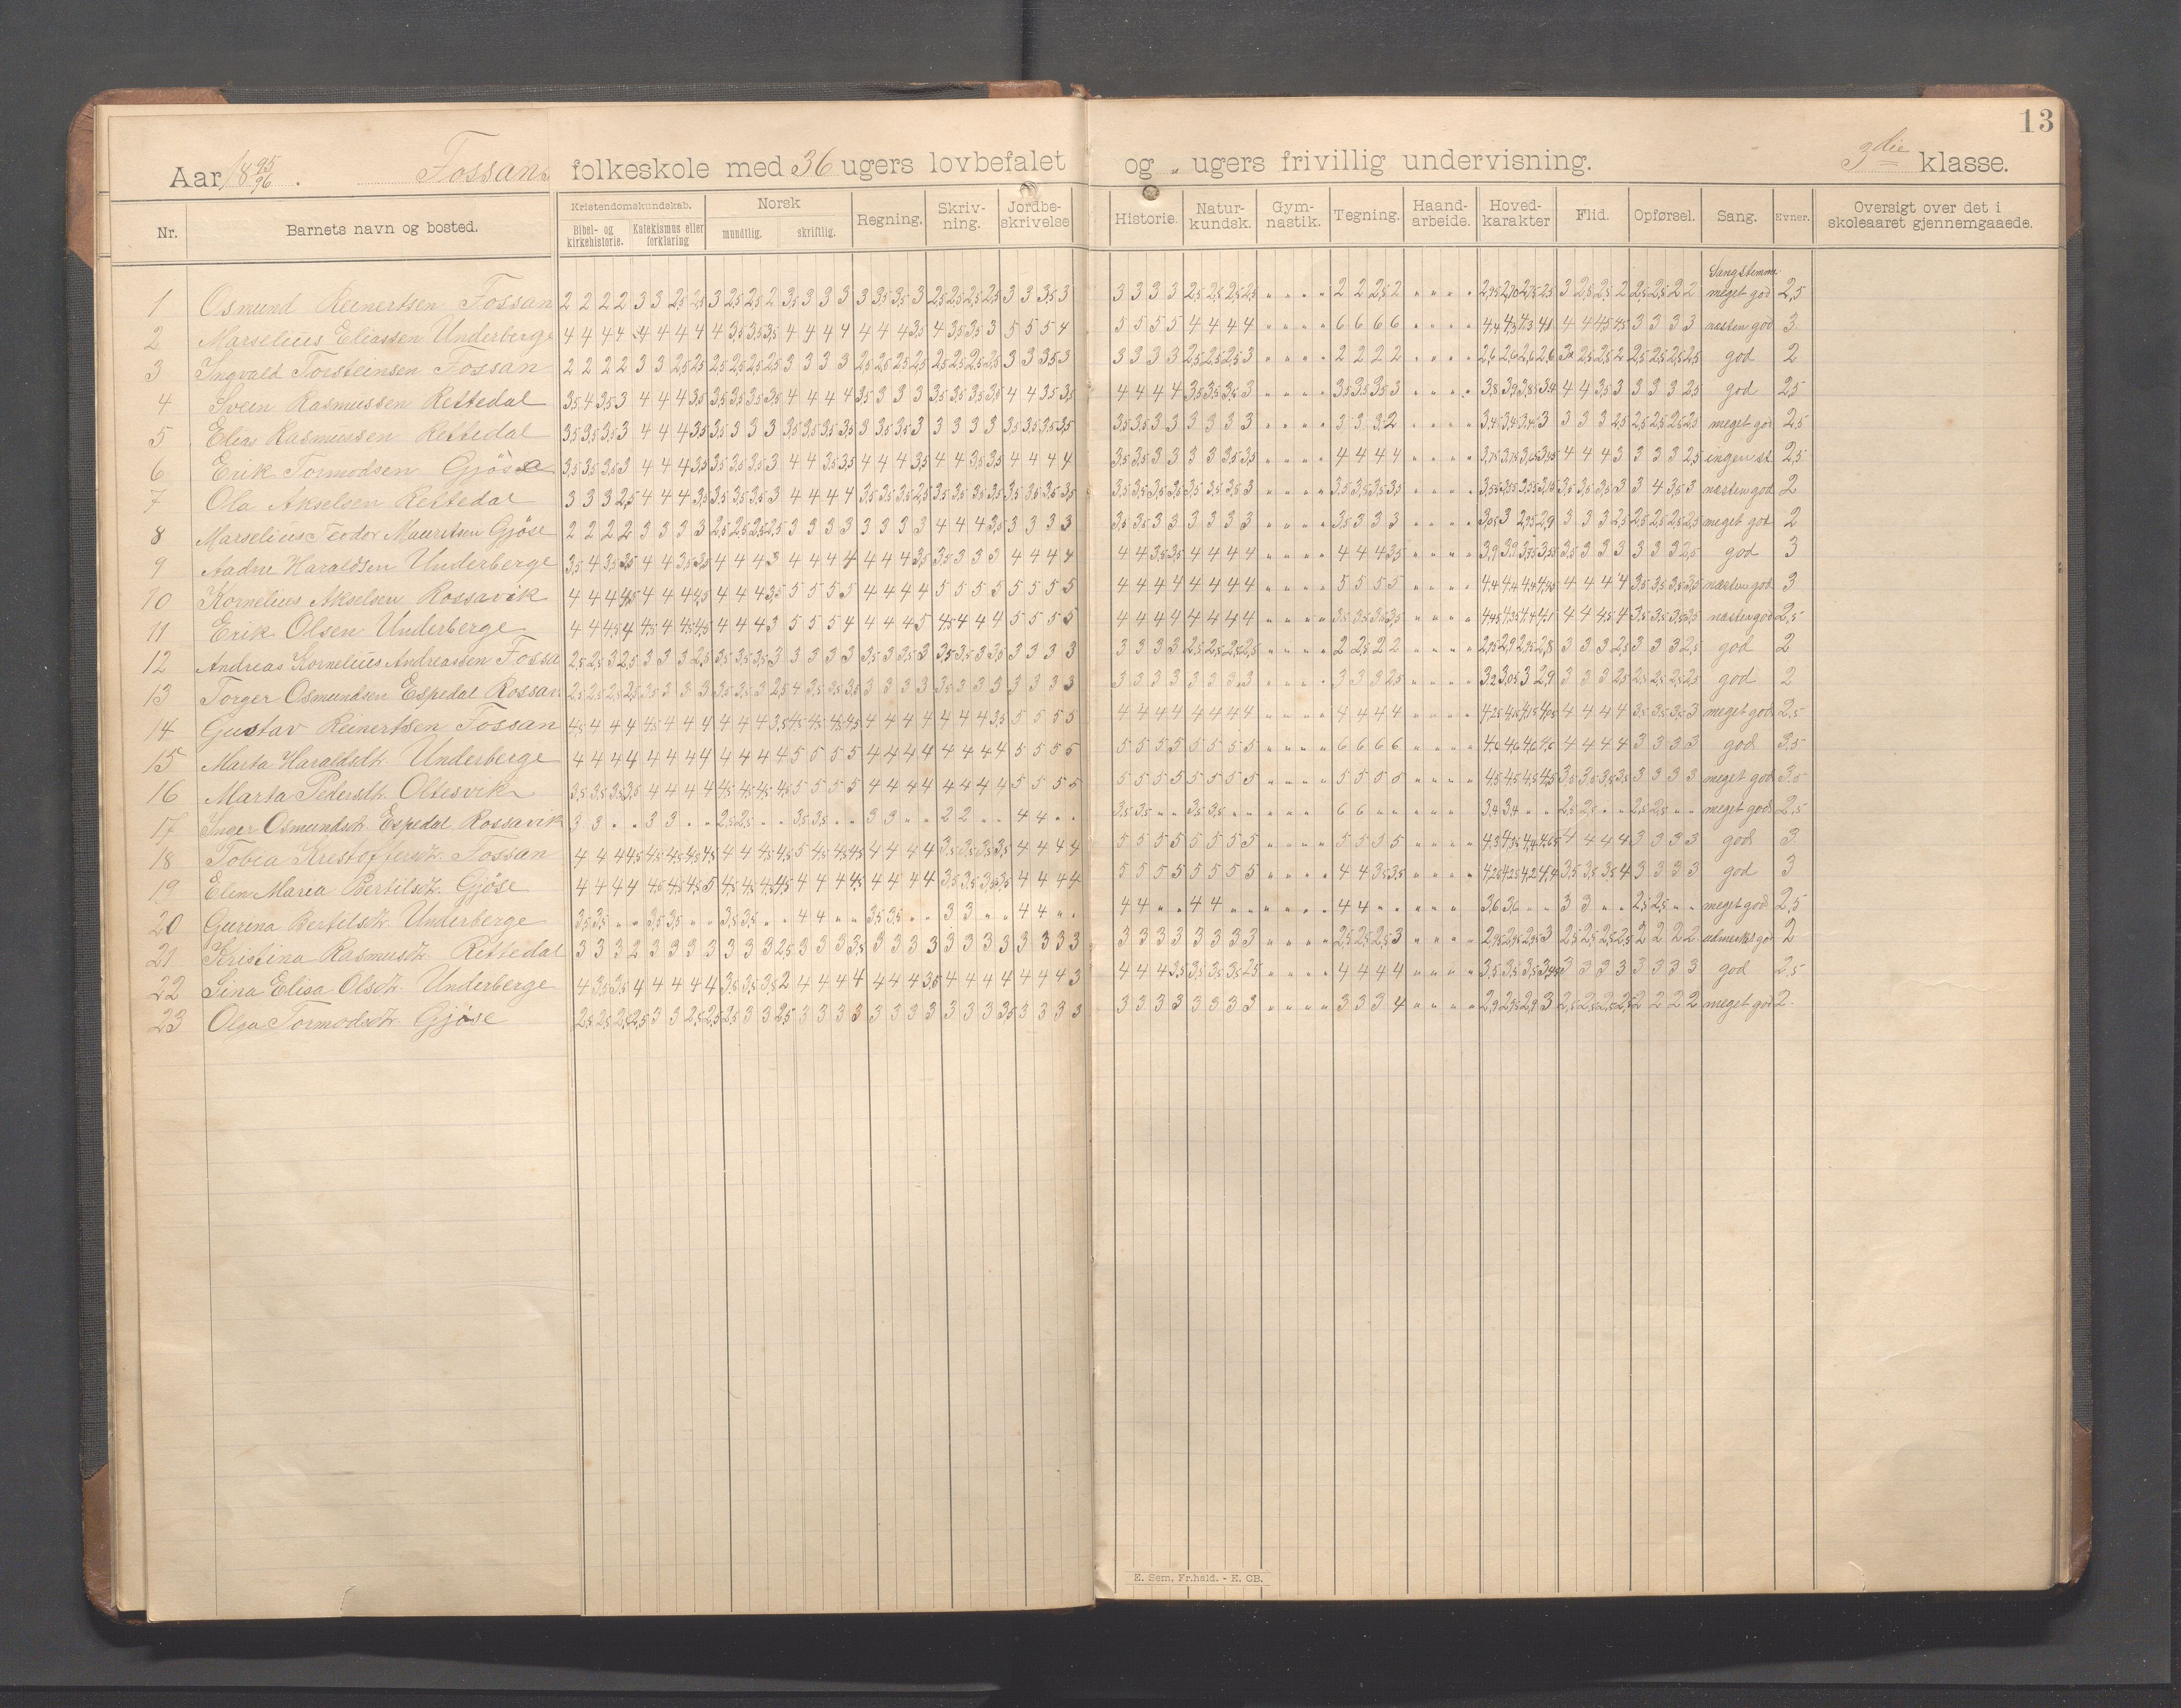 13
Aar 1895/96. Fossan folkeskole med 36 ugers lovbefalet og „ ugers frivillig undervisning. 3die klasse.
Nr. Barnets navn og bosted. Kristendomskundskab. Bibel- og kirkehistorie. Katekismus eller forklaring Norsk mundtlig. skriftlig. Regning. Skriv-ning. Jordbe-skrivelse Historie. Natur-kundsk. Gym-nastik. Tegning. Haand-arbeide. Hoved-karakter Flid. Opførsel. Sang. Evner. Oversigt over det i skoleaaret gjennemgaaede.
Sangstemme
1 Osmund Reinertsen Fossan 2 2 2 2 3 3 2,5 2,5 3 2,5 2,5 2 3,5 3 3 3 3 3,5 3,5 3 2,5 2,5 2,5 2,5 3 3 3,5 3 3 3 3 3 2,5 2,5 2,5 2,5 „ „ „ „ 2 2 2,5 2 „ „ „ „ 3 2,5 2,5 2 2,5 2,5 2 2 meget god 2,5
2 Marselius Eliassen Underberge 4 4 4 4 4 4 4 4 4 3,5 3,5 3,5 4 4 4 4 4 4 4 3,5 4 3,5 3,5 3 5 5 5 4 5 5 5 5 4 4 4 4 „ „ „ „ 6 6 6 6 „ „ „ „ 4 4 4,5 4,5 3 3 3 3 næsten god 3
3 Ingvald Torsteinsen Fossan 2 2 2 2 3 3 2,5 2,5 2,5 2,5 2,5 2,5 3 3 3 3 2,5 2,5 2,5 2,5 2,5 2,5 2,5 2,5 3 3 3,5 3 3 3 3 3 2,5 2,5 2,5 3 „ „ „ „ 2 2 2 2 „ „ „ „ 2,6 2,6 2,6 2,6 3 2,5 2,5 2 2,5 2,5 2,5 2,5 god 2
4 Svein Rasmussen Rettedal 3,5 4 3,5 3 4 4 4 3,5 3,5 3,5 3,5 3,5 4 4 4 4 3,5 3 3 3 3,5 3,5 3,5 3,5 4 4 3,5 3,5 4 4 4 4 3,5 3,5 3,5 3 „ „ „ „ 3,5 3,5 3,5 3 „ „ „ „ 4 4 3,5 3 3 3 3 2,5 god 2,5
5 Elias Rasmussen Rettedal 3,5 3,5 3,5 3 4 4 4 3,5 3,5 3 3 3 3,5 3,5 3,5 3,5 3 3,5 3,5 3 3 3 3 3 3,5 3,5 3,5 3,5 3,5 3,5 3 3 3 3 3 3 „ „ „ „ 3 3 3 2 „ „ „ „ 3 3 3 2,5 2,5 2,5 2,5 2,5 meget god 2,5
6 Erik Tormodsen Gjöse 3,5 3,5 3,5 3 4 4 4 3,5 3,5 3,5 3,5 3 4 4 3,5 3,5 4 4 4 3,5 4 4 3,5 3,5 4 4 4 4 3,5 3,5 3 3 3 3 3,5 3,5 „ „ „ „ 4 4 4 4 „ „ „ „ 4 4 4 3 3 3 3 2,5 ingen st 2,5
7 Ola Akselsen Rettedal 3 3 3 2,5 4 4 4 3,5 3,5 3,5 3,5 3 4 4 4 4 3,5 3,5 3,5 2,5 3,5 3,5 3,5 3,5 3,5 3,5 3,5 3,5 3,5 3,5 3,5 3,5 3,5 3,5 3,5 3 „ „ „ „ 3,5 3,5 3,5 3,5 „ „ „ „ 3,5 3,5 3,5 3 3 4 3,5 3 næsten god 2
8 Marselius Teodor Mauritsen Gjöse 2 2 2 2 3 3 3 3 2,5 2,5 2,5 2,5 3 3 3 3 3 3 3 3 4 4 4 3,5 3 3 3 3 3,5 3,5 3 3 3 3 3 3 „ „ „ „ 3,5 3 3 3 „ „ „ „ 3,05 3 2,95 2,9 3 3 3 2,5 2,5 2,5 2,5 2,5 meget god 2
9 Aadne Haraldsen Underberge 3,5 4 3,5 3,5 4 4 3,5 3,5 4 4 4 3 4 4 4 4 4 4 4 3,5 3,5 3 3 3 4 4 4 4 4 4 3,5 3,5 4 4 4 4 „ „ „ „ 4 4 4 3,5 „ „ „ „ 3,5 3 3 3 3 3 3 2,5 god 3
10 Kornelius Akselsen Rossavik 4 4 4 4,5 4 4 4 4,5 4 4 4 3,5 5 5 5 5 4 4 4 4 5 5 5 5 5 5 5 5 4 4 4 4 4 4 4 4 „ „ „ „ 5 5 5 5 „ „ „ „ 4 4 4 4 3,5 3,5 3,5 3,5 næsten god 3
11 Erik Olsen Underberge 4 4 4,5 4 4,5 4 4,5 4,5 4 4 4 3 5 5 5 4 4 4 4 5 4,5 4 4 4 5 5 5 5 4 4 4 4 4 4 4 4 „ „ „ „ 3,5 3,5 3,5 3,5 „ „ „ „ 4 4 4,5 4 3,5 3,5 3,5 3,5 næsten god 2,5
12 Andreas Kornelius Andreassen Fossa 2,5 2,5 3 2,5 3 3 3 2,5 3,5 3,5 3,5 3 3 3 3 3 3,5 3 3,5 3 3,5 3,5 3 3,5 3 3 3 3 3 3 3 3 2,5 2,5 2,5 2,5 „ „ „ „ 2 2,5 2 2 „ „ „ „ 2,95 2,9 2,95 2,8 3 3 3 2,5 3 3 3 2,5 god 2
13 Torger Osmundsen Espedal Rossan 2,5 2,5 2,5 2,5 3,5 3 3 3 3,5 3,5 3 2,5 4 3,5 3,5 3,5 3 3 3 3 3,5 3 3 3 3 3 3 3 3 3 3 3 3 3 3 3 „ „ „ „ 3 3 3 2,5 „ „ „ „ 3,2 3,05 3 2,9 3 3 3 2,5 2,5 2,5 2,5 2,5 god 2
14 Gustav Reinertsen Fossan 4,5 4 4 4 4,5 4 4 4 4 4 4 3,5 4,5 4,5 4,5 4,5 4 4 4 4 4 4 4 3,5 5 5 5 5 4 4 4 4 4 4 4 4 „ „ „ „ 4 4 4 4 „ „ „ „ 4 4 4 4 3,5 3,5 3,5 3 meget god 2,5
15 Marta Haraldsdt. Underberge 4 4 4 4 4 4 4 4 4 4 4 4 5 5 5 5 4 4 4 4 4 4 4 4 5 5 5 5 5 5 5 5 5 5 5 5 „ „ „ „ 6 6 6 6 „ „ „ „ 4,6 4,6 4,6 4,6 4 4 4 4 3 3 3 3 god 3,5
16 Marta Pedersdt. Oltesvik 3,5 3,5 3,5 3,5 4 4 4 4 4,5 4,5 4,5 4,5 5 5 5 5 4 4 4 4 4 4 4 4 5 5 5 5 5 5 5 5 5 5 5 5 „ „ „ „ 5 5 5 5 „ „ „ „ 4,5 4,5 4,5 4,5 3,5 3,5 3,5 3,5 3 3 3 3 meget god 3,5
17 Inger Osmundsdt. Espedal Rossavik 3 3 „ „ 3 3 „ „ 2,5 2,5 „ „ 3,5 3,5 „ „ 3 3 „ „ 2 2 „ „ 4 4 „ „ 3,5 3,5 „ „ 3,5 3,5 „ „ „ „ „ „ 6 6 „ „ „ „ „ „ 3,4 3,4 „ „ 2,5 2,5 „ „ 2,5 2,5 „ „ meget god 2,5
18 Tobia Kristoffersdt. Fossan 4 4 4 4,5 4,5 4,5 4,5 4,5 4 4 4,5 4,5 5 4,5 4,5 4,5 4 4 4 4 3,5 3,5 3,5 3,5 4 4 4 4 5 5 5 5 5 5 5 5 „ „ „ „ 5 5 5 5 „ „ „ „ 4 4 4 4 3 3 3 3 god 3
19 Elen Maria Bertilsdt. Gjöse 4 4 4 4 4,5 4,5 4,5 5 4,5 4,5 4,5 4,5 4 4 4 4,5 4 4 4 4 3,5 3,5 3,5 3,5 4 4 4 4 5 5 5 5 5 5 5 5 „ „ „ „ 4 4 3,5 3,5 „ „ „ „ 4,25 4,25 4,2 4,4 3,5 3,5 3,5 4 3 3 3 3 god 3
20 Gurina Bertilsdt. Underberge 3,5 3,5 „ „ 3,5 3,5 „ „ 3,5 3,5 „ „ 4 4 „ „ 3,5 3,5 „ „ 3 3 „ „ 4 4 „ „ 4 4 „ „ 4 4 „ „ „ „ „ „ 4 4 „ „ „ „ „ „ 3,6 3,6 „ „ 3 3 „ „ 2,5 2,5 „ „ meget god 2,5
21 Kristina Rasmusdt. Rettedal 3 3 3 2 3 3 3 3 3 3 3 2,5 3 3 3 3,5 3 3 3 3 3 3 3 3 3 3 3 3 3 3 3 3 3 3 3 3 „ „ „ „ 2,5 2,5 2,5 3 „ „ „ „ 2,95 2,95 2,95 3 2,5 2,5 2,5 2,5 2 2 2 2 udmerket god 2
22 Sina Elisa Olsdt. Underberge 4 3,5 3,5 4 4 4 4 4 3,5 3,5 3,5 2 4 4 4 4 4 4 4 3,5 4 4 4 4 4 4 4 3 4 4 4 3,5 3,5 3,5 3,5 2,5 „ „ „ „ 4 4 4 4 „ „ „ „ 3 3 3 3 3 3 3 3 god 2,5
23 Olga Tormodsdt. Gjöse 2,5 2,5 2,5 2,5 3 3 2,5 2,5 2,5 3 3 2,5 3 3 3 3 3 3 3 3 3 3 3 3,5 3 3 3 3 3 3 3 3 3 3 3 3 „ „ „ „ 3 3 3 4 „ „ „ „ 2,9 2,95 2,9 3 2,5 2,5 2,5 2,5 2 2 2 2 meget god 2
E. Sem, Fr.hald. - E. CB.